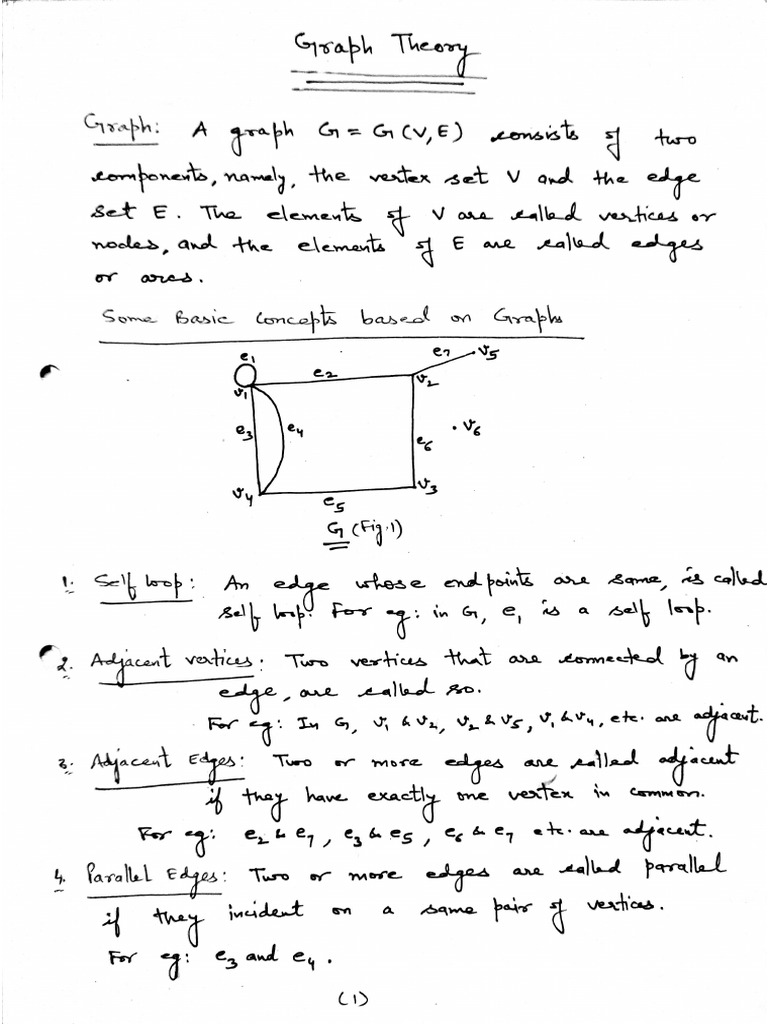 Graph Theory
Graph: A graph G = G(V,E) consists of two
components, namely, the vertex set V and the edge
set E. The elements of V are called vertices or
nodes, and the elements of E are called edges
or arcs.
Some Basic Concepts based on Graphs
e₁
e₂
e₇
v₅
v₁
v₂
e₃
e₄
e₆
v₆
v₄
e₅
v₃
G (Fig.1)
1. Self loop: An edge whose end points are same, is called
self loop. For eg: in G, e₁ is a self loop.
2. Adjacent vertices: Two vertices that are connected by an
edge, are called so.
For eg: In G, v₁ & v₂, v₂ & v₅, v₁ & v₄, etc. are adjacent.
3. Adjacent Edges: Two or more edges are called adjacent
if they have exactly one vertex in common.
For eg: e₂ & e₇, e₃ & e₅, e₆ & e₇ etc. are adjacent.
4. Parallel Edges: Two or more edges are called parallel
if they incident on a same pair of vertices.
For eg: e₃ and e₄.
(1)